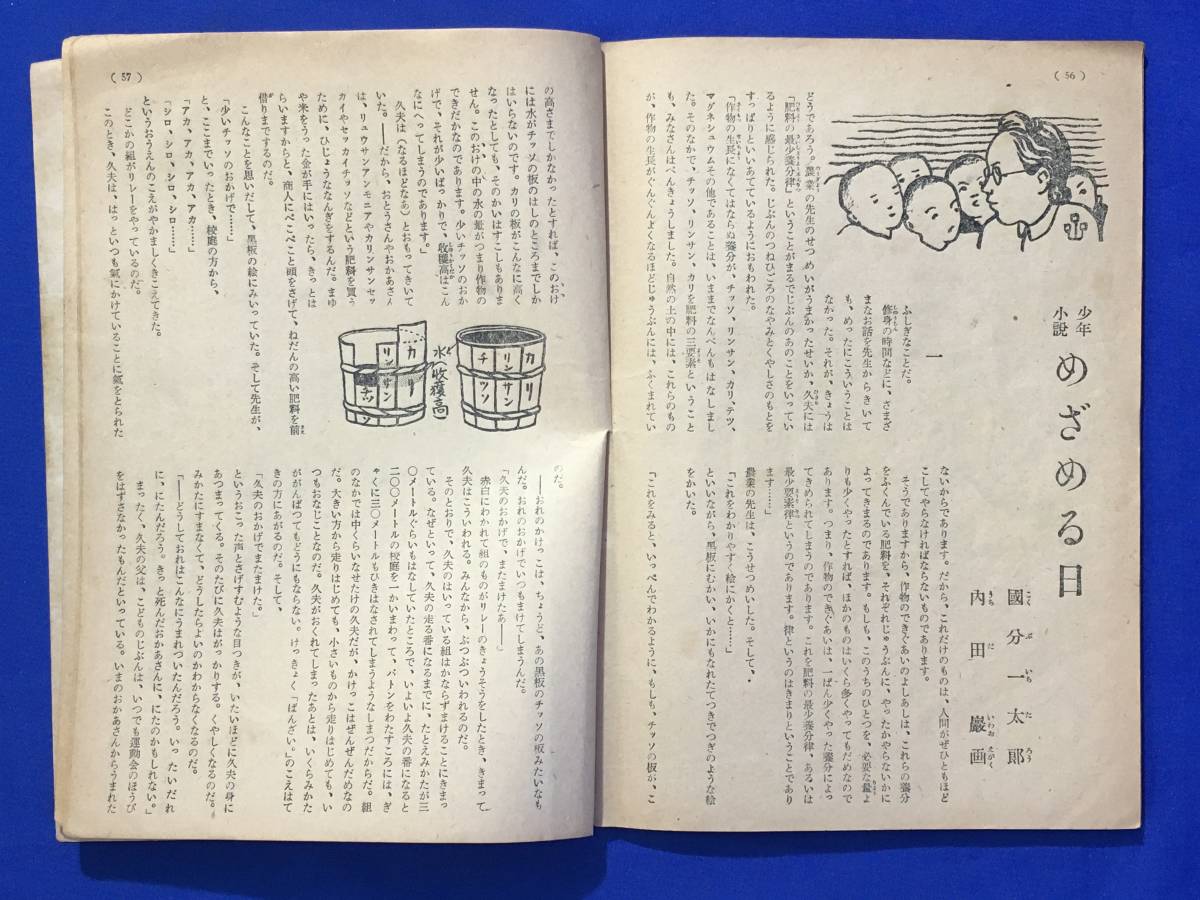 ( 56 )
少年
小説
めざめる日
國分一太郎
こくぶいちたろう
内田巖画
うちだいわおえがく
一
ふしぎなことだ。
修身の時間などに、さまざ
まなお話を先生からきいて
も、めったにこういうことは
なかった。それが、きょうは
どうであろう。農業の先生のせつめいがうまかったせいか、久夫には
「肥料の最少養分律」ということがまるでじぶんのあのことをいってい
るように感じられた。じぶんのつねひごろのなやみとくやしさのもとを
すっぱりといいあてているようにおもわれた。
「作物の生長になくてはならぬ養分が、チッソ、リンサン、カリ、テツ、
マグネシュウムその他であることは、いままでなんべんもはなしまし
た。そのなかで、チッソ、リンサン、カリを肥料の三要素ということ
も、みなさんはべんきょうしました。自然の土の中には、これらのもの
が、作物の生長がぐんぐんよくなるほどじゅうぶんには、ふくまれてい
ないからであります。だから、これだけのものは、人間がぜひともほど
こしてやらなければならないものであります。
そうでありますから、作物のできぐあいのよしあしは、これらの養分
をふくんでいる肥料を、それぞれじゅうぶんに、やったかやらないかに
よってきまるのであります。もしも、このうちのひとつを、必要な量よ
りも少くやったとすれば、ほかのものはいくら多くやってもだめなので
あります。つまり、作物のできぐあいは、一ばん少くやった養分によっ
てきめられてしまうのであります。これを肥料の最少養分律、あるいは
最少要素律というのであります。律というのはきまりということであり
ます……」
農業の先生は、こうせつめいした。そして、
「これをわかりやすく絵にかくと……」
といいながら、黒板にむかい、いかにもなれたてつきでつぎのような絵
をかいた。
「これをみると、いっぺんでわかるように、もしも、チッソの板が、こ
( 57 )
の高さまでしかなかったとすれば、このおけ
には水がチッソの板のはしのところまでしか
はいらないのです。カリの板がこんなに高く
なったとしても、そのかいはすこしもありま
せん。このおけの中の水の量がつまり作物の
できだかなのであります。少いチッソのおか
げで、それが少いばっかりで、收穫高はこん
なにへってしまうのであります。」
久夫は（なるほどなあ）とおもってきいて
いた。——だから、おとうさんやおかあさん
は、リュウサンアンモニアやカリンサンセッ
カイやセッカイチッソなどという肥料を買う
ために、ひじょうななんぎをするんだ。まゆ
や米をうった金が手にはいったら、きっとは
らいますからと、商人にぺこぺこ頭をさげて、ねだんの高い肥料を前
借りまでするのだ。
こんなことを思いだして、黒板の絵にみいっていた。そして先生が、
「少いチッソのおかげで……」
と、ここまでいったとき、校庭の方から、
「アカ、アカ、アカ、アカ……」
「シロ、シロ、シロ、シロ……」
というおうえんのこえがやかましくきこえてきた。
どこかの組がリレーをやっているのだ。
このとき、久夫は、はっといつも氣にかけていることに氣をとられた
カリ
リンサン
チッソ
カリ
リンサン
チッソ
水と
收穫高
のだ。
——おれのかけっこは、ちょうど、あの黒板のチッソの板みたいなも
んだ。おれのおかげでいつもまけてしまうんだ。
「久夫のおかげで、またまけたあ——」
赤白にわかれて組のものがリレーのきょうそうをしたとき、きまって
久夫はこういわれる。みんなから、ぶつぶついわれるのだ。
そのとおりで、久夫のはいっている組はかならずまけることにきまっ
ている。なぜといって、久夫の走る番になるまでに、たとえみかたが三
〇メートルぐらいもはなしていたところで、いよいよ久夫の番になると
二〇〇メートルの校庭を一かいまわって、バトンをわたすころには、ぎ
ゃくに三〇メートルもひきはなされてしまうようなしまつだからだ。組
のなかでは中くらいなせたけの久夫だが、かけっこはぜんぜんだめなの
だ。大きい方から走りはじめても、小さいものから走りはじめても、い
つもおなじことなのだ。久夫がおくれてしまったあとは、いくらみかた
ががんばつてもどうにもならない。けっきょく「ばんざい。」のこえはて
きの方にあがるのだ。そして、
「久夫のおかげでまたまけた。」
というおこった声とさげすむような目つきが、いたいほどに久夫の身に
あつまってくる。そのたびに久夫はがっかりする。くやしくなるのだ。
みかたにすまなくて、どうしたらよいのかわからなくなるのだ。
「——どうしておれはこんなにうまれついたんだろう。いったいだれ
に、にたんだろう。きっと死んだおかあさんに、にたのかもしれない。」
まったく、久夫の父は、こどものじぶんは、いつでも運動会のほうび
をはずさなかったもんだといっている。いまのおかあさんからうまれた